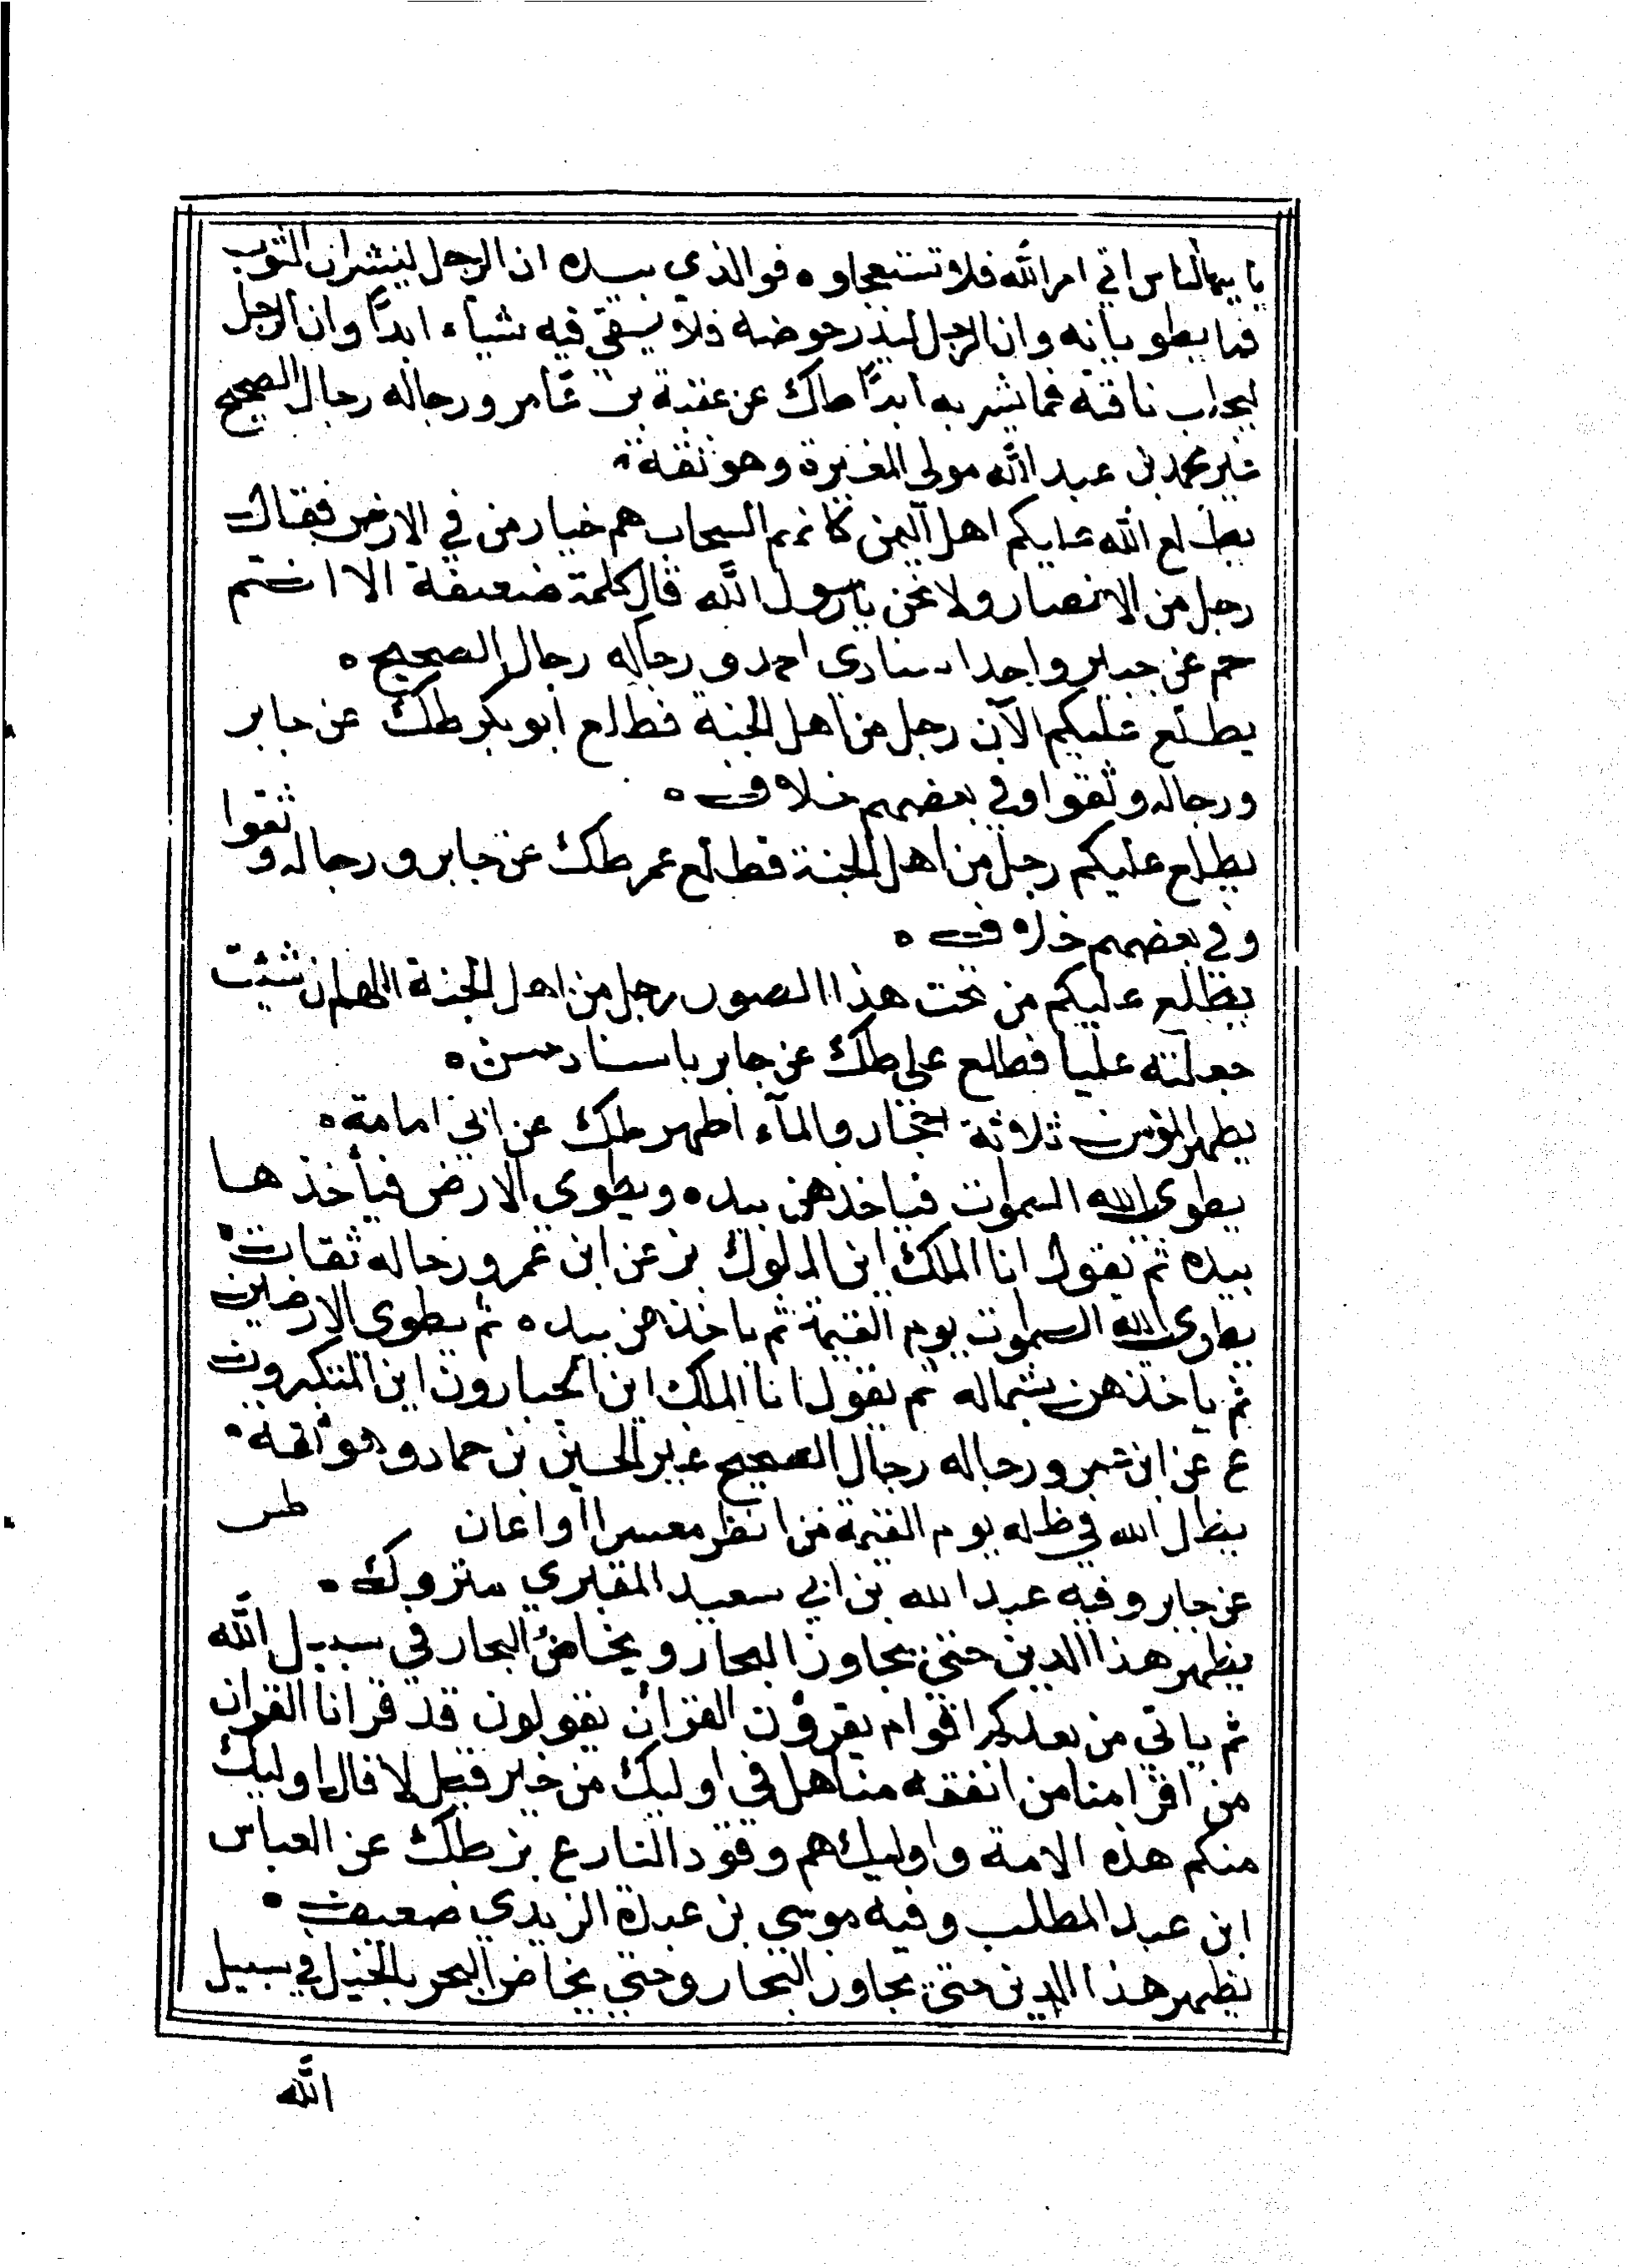 يا ايها الناس اتي امر الله فلا تستعجلوه فوالذي بيده ان الرجل لينشران الثوب
فما يطويانه وان الرجل ليذر حوضه فلا يسقي فيه شياء ابدًا وان الرجل
ليحلب ناقته فما يشربه ابدًا طك عن عقبة بن عامر ورجاله رجال الصحيح
غير محمد بن عبد الله مولى المغيرة وهو ثقة
يطلع الله عليكم اهل اليمن كانهم السحاب هم خيار من في الارض فقال
رجل من الانصار ولا نحن يا رسول الله قال كلمة ضعيفة الا انتم
حم عن جبير واحدا سنادي احمد ورجاله رجال الصحيح ه
يطلع عليكم الآن رجل من اهل الجنة فطلع ابو بكر طك عن جابر
ورجاله وثقوا وفي بعضهم خلاف ه
يطلع عليكم رجل من اهل الجنة فطلع عمر طك عن جابر ورجاله وثقوا
وفي بعضهم خلاف ه
يطلع عليكم من تحت هذا الصور رجل من اهل الجنة اللهم ان شئت
جعلته عليا فطلع علي طك عن جابر باسناد حسن ه
يطهر المؤمن ثلاثة احجار والمآء اطهر طك عن ابي امامة ه
يطوي الله السموات فياخذهن بيده ويطوي الارض فيأخذها
بيده ثم يقول انا الملك اين الملوك بز عن ابن عمر ورجاله ثقات
يطوي الله السموات يوم القيمة ثم ياخذهن بيده ثم يطوي الارضين
ثم ياخذهن بشماله ثم يقول انا الملك اين الجبارون اين المتكبرون
ع عن ابن عمر ورجاله رجال الصحيح غير الحسين بن حماد وهو ثقة
يظل الله في ظله يوم القيمة من انظر معسرا او اعان طس
عن جابر وفيه عبد الله بن ابي سعيد المقبري متروك
يظهر هذا الدين حتى يجاوز البحار ويخاض البحار في سبيل الله
ثم ياتي من بعدكم اقوام يقرؤن القرآن يقولون قد قرانا القران
من اقرا منا من افقه منا هل في اوليك من خير قيل لا قال اوليك
منكم هذه الامة واوليك هم وقود النار ع بز طك عن العباس
ابن عبد المطلب وفيه موسى بن عبدة الزيدي ضعيف
يظهر هذا الدين حتى يجاوز البحار وحتى يخاض البحر بالخيل في سبيل
الله